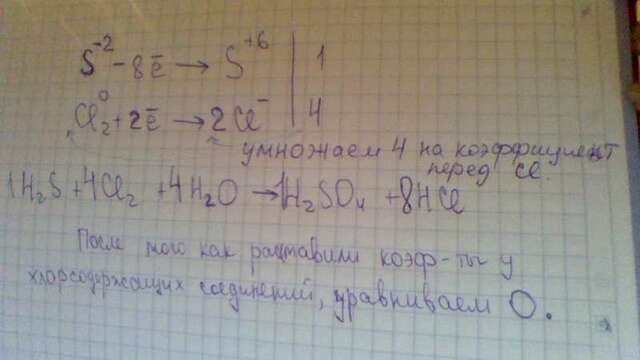 S⁻² - 8ē → S⁺⁶ | 1
Cl₂⁰ + 2ē → 2Cl⁻ | 4
умножаем 4 на коэффициент
перед Cl.
1H₂S + 4Cl₂ + 4H₂O → 1H₂SO₄ + 8HCl
После того как расставили коэф-ты у
хлорсодержащих соединений, уравниваем O.